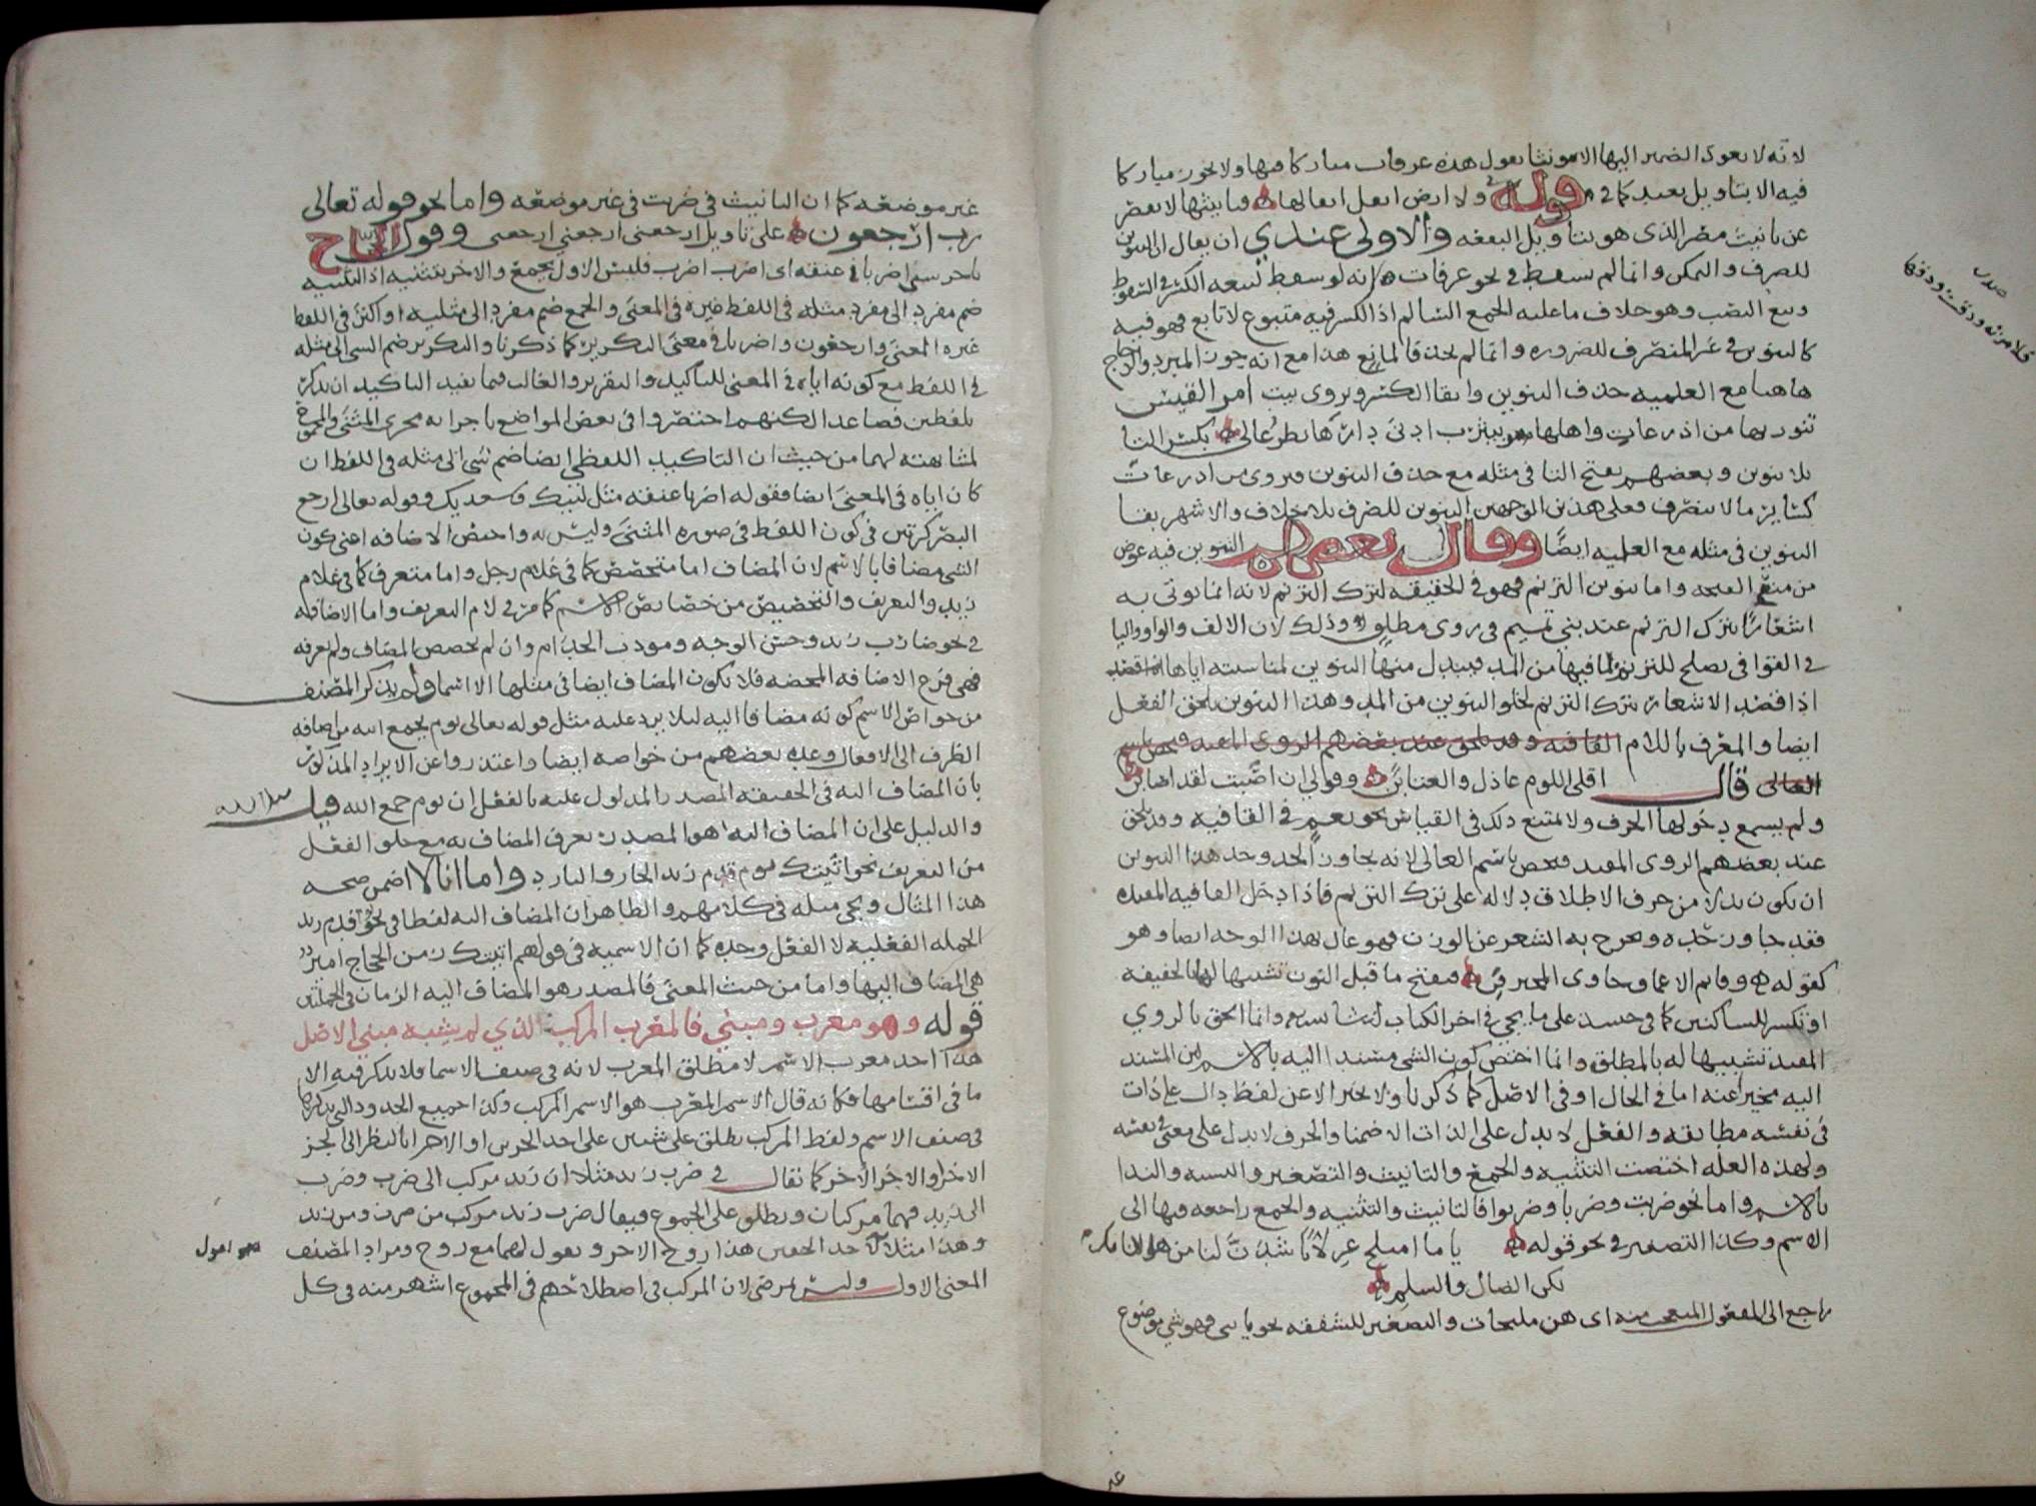 لانه لا يعود الضمير اليها الا مونثا يقول هذه عرفات مباركا فيها ولا يجوز مباركا
فيه الا بتاويل بعيد كما في قوله ولا ارض ابقل ابقالها فتانيثها لا يقصر
عن تانيث مصر الذى هو بتاويل البقعه والاولى عندي ان يقال ان التنوين
للصرف والتمكن وانما لم يسقط في نحو عرفات لانه لو سقط لتبعه الكسر في السقوط
وتبع النصب وهو خلاف ما عليه الجمع السالم اذ الكسر فيه متبوع لا تابع فهو فيه
كالتنوين في غير المنصرف للضروره وانما لم يحذف لمانع هذا مع انه جوز المبرد والزجاج
هاهنا مع العلميه حذف التنوين وابقا الكسر ويروى بيت امرالقيس
تنورتها من اذرعات واهلها بيثرب ادنى دارها نظر عالى بكسر التا
بلا تنوين وبعضهم يفتح التا في مثله مع حذف التنوين ويروى من اذرعات
كسائر ما لا ينصرف فعلى هذين الوجهين التنوين للصرف بلا خلاف والاشهر بقا
التنوين في مثله مع العلميه ايضا وقال بعضهم التنوين فيه عوض
من منع الفتحه واما تنوين الترنم فهو في الحقيقه لترك الترنم لانه انما يوتى به
اشعارا بترك الترنم عند بني تميم في روى مطلق وذلك لان الالف والواو واليا
في القوافى تصلح للترنم لما فيها من المد فيبدل منها التنوين لمناسبته اياها
اذا قصد الاشعار بترك الترنم لخلو التنوين من المد وهذا التنوين يلحق الفعل
ايضا والمعرف باللام القافيه وقد يلحق عند بعضهم الروى المقيد فيخص باسم
الغالى قال اقلى اللوم عاذل والعتابن وقولي ان اصبت لقد اصابن
ولم يسمع دخولها الحرف ولا يمتنع ذلك في القياس نحو نعم في القافيه وقد يلحق
عند بعضهم الروى المقيد فيخص باسم الغالى لانه تجاوز الحد وحد هذا التنوين
ان يكون بدلا من حرف الاطلاق دلاله على ترك الترنم فاذا دخل القافيه المقيده
فقد جاوز حده ويخرج به الشعر عن الوزن فهو غال بهذا الوجه ايضا وهو
كقوله وقاتم الاعماق خاوى المخترقن فيفتح ما قبل النون تشبيها لها بالخفيفه
او تكسر للساكنين كما في حينئذ على ما يجي في اخر الكتاب ان شا الله وانما الحق بالروي
المقيد تشبيها له بالمطلق وانما اختص كون الشي مسندا اليه بالاسم لان المسند
اليه مخبر عنه اما في الحال او في الاصل كما ذكرنا ولا يخبر الا عن لفظ دال على ذات
في نفسه مطابقه والفعل لا يدل على الذات الا ضمنا والحرف لا يدل على معنى في نفسه
ولهذه العله اختصت التثنيه والجمع والتانيث والتصغير والنسبه والندا
بالاسم واما نحو ضربت وضربا وضربوا فالتانيث والتثنيه والجمع راجعه فيها الى
الاسم وكذا التصغير في نحو قوله يا ما اميلح غزلانا شدن لنا من هوليائكن
الضال والسلم
راجع الى المفعول المتعجب منه اى هن مليحات والتصغير للشفقه نحو يا بنى فهو شي موضوع
غير موضعه كما ان التانيث في ضربت في غير موضعه واما نحو قوله تعالى
رب ارجعون على تاويل ارجعنى ارجعني ارجعنى وقول الحجاج
يا حرسى اضربا عنقه اى اضرب اضرب فليس الاول بجمع والاخر بتثنيه اذ التثنيه
ضم مفرد الى مفرد مثله في اللفظ غيره في المعنى والجمع ضم مفرد الى مثليه او اكثر في اللفظ
غيره المعنى وارجعون واضربا في معنى التكرير كما ذكرنا والتكرير ضم الشى الى مثله
في اللفظ مع كونه اياه في المعنى للتاكيد والتقرير والغالب فيما يفيد التاكيد ان يذكر
بلفظين فصاعدا لكنهم اختصروا في بعض المواضع باجرايه مجرى المثنى والمجموع
لمشابهته لهما من حيث ان التاكيد اللفظي ايضا ضم شى الى مثله في اللفظ ان
كان اياه في المعنى ايضا فقوله اضربا عنقه مثل لبيك وسعديك وقوله تعالى ارجع
البصر كرتين في كون اللفظ في صوره المثنى وليس به واختص الاضافه اعنى كون
الشى مضافا بالاسم لان المضاف اما متخصص كما في غلام رجل واما متعرف كما في غلام
زيد والتعريف والتخصيص من خصايص الاسم كما مر في لام التعريف واما الاضافه
في نحو ضارب زيد وحسن الوجه ومودب الخدام وان لم تخصص المضاف ولم تعرفه
فهي فرع الاضافه المحضه فلا يكون المضاف ايضا في مثلها الا اسما ولم يذكر المصنف
من خواص الاسم كونه مضافا اليه لئلا يرد عليه مثل قوله تعالى يوم يجمع الله من اضافه
الظرف الى الافعال وعده بعضهم من خواصه ايضا واعتذروا عن الايراد المذكور
بان المضاف اليه في الحقيقه المصدر المدلول عليه بالفعل ان يوم جمع الله قيل
والدليل على ان المضاف اليه هو المصدر تعرف المضاف به مع خلو الفعل
من التعريف نحو اتيتك يوم قدم زيد الحار والبارد واما انا لا اضمن صحه
هذا المثال ويجي مثله في كلامهم والظاهر ان المضاف اليه لفظا في نحو قدم زيد
الجمله الفعليه لا الفعل وحده كما ان الاسميه في قولهم اتيتك زمن الحجاج امير
هي المضاف اليها واما من حيث المعنى فالمصدر هو المضاف اليه الزمان في الجملتين
قوله وهو معرب ومبني فالمعرب المركب الذي لم يشبه مبني الاصل
هذا احد معرب الاسم لا مطلق المعرب لانه في صنف الاسما فلا يذكر فيه الا
ما في اقسامها فكانه قال الاسم المعرب هو الاسم المركب وكذا جميع الحدود التى يذكرها
في صنف الاسم ولفظ المركب يطلق على شيين على احد الجزين او الاجزا بالنظر الى الجز
الاخر او الاجزا الاخر كما يقال في ضرب زيد مثلا ان زيد مركب الى ضرب وضرب
الى زيد فهما مركبان ويطلق على المجموع فيقال ضرب زيد مركب من ضرب ومن زيد
وهذا مثلا لاحد الخفين هذا زوج الاخر ويقول لهما معا زوج ومراد المصنف
المعنى الاول وليس بمرضى لان المركب في اصطلاحهم في المجموع اشهر منه في كل